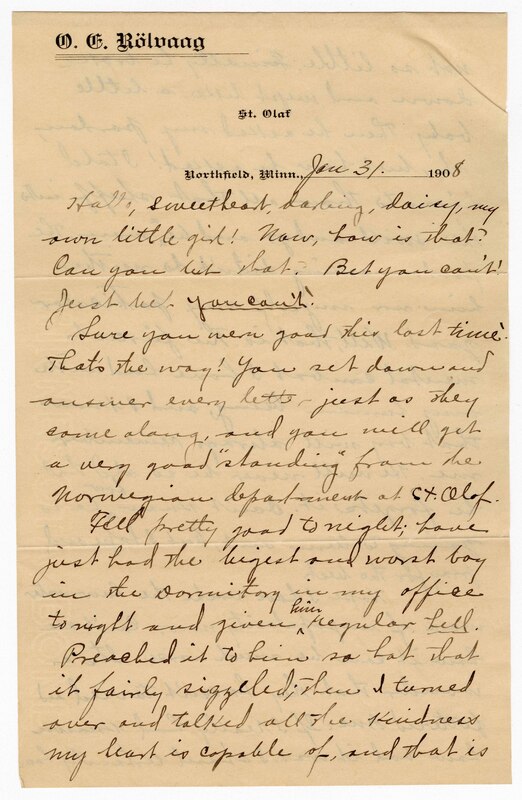 O. E. Rölvaag
St. Olaf
Northfield, Minn., Jan 31. 1908
Hallo, sweetheart, darling, daisy, my
own little girl! Now, how is that?
Can you bet that. Bet you can't!
Just bet you can't!
Sure you were good this last time.
Thats the way! You set down and
answer every letter just as they
come along, and you will get
a very good "standing" from the
Norwegian department at St. Olof.
Feel pretty good to night; have
just had the bigest and worst boy
in the dormitory in my office
to night and given him regular hell.
Preached it to him so hot that
it fairly sizzeled; then I turned
over and talked all the kindness
my heart is capable of, and that is